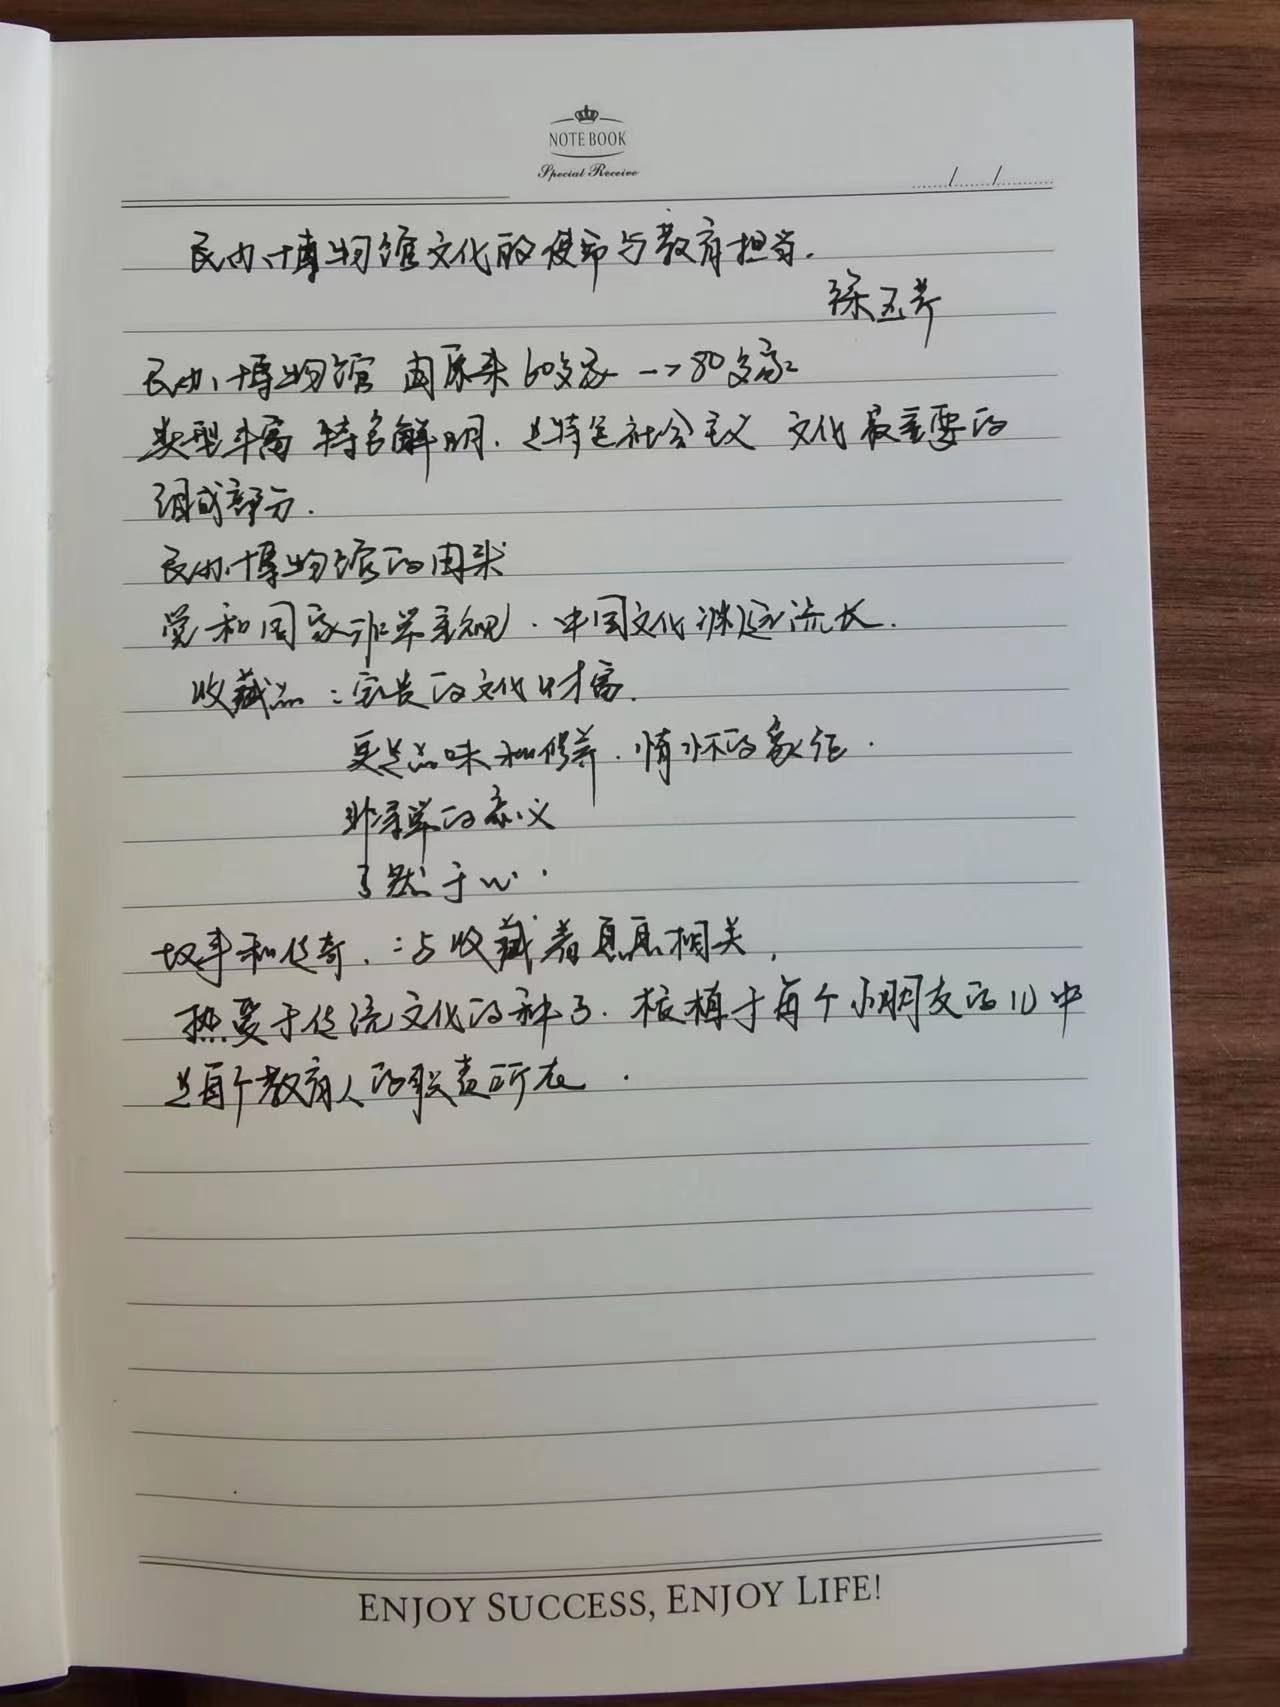 NOTE BOOK
Special Receive
民办博物馆文化的使命与教育担当.
徐玉芹
民办博物馆 由原来60多家→80多家
类型丰富 特色鲜明.是特色社会主义 文化最重要的
组成部分.
民办博物馆的由来
党和国家非常重视.中国文化渊远流长.
收藏品:宝贵的文化财富.
更是品味和修养.情怀的象征.
非寻常的意义
了然于心.
故事和传奇.:与收藏者息息相关,
热爱于传统文化的种子.根植于每个小朋友的心中
是每个教育人的职责所在.
ENJOY SUCCESS, ENJOY LIFE!